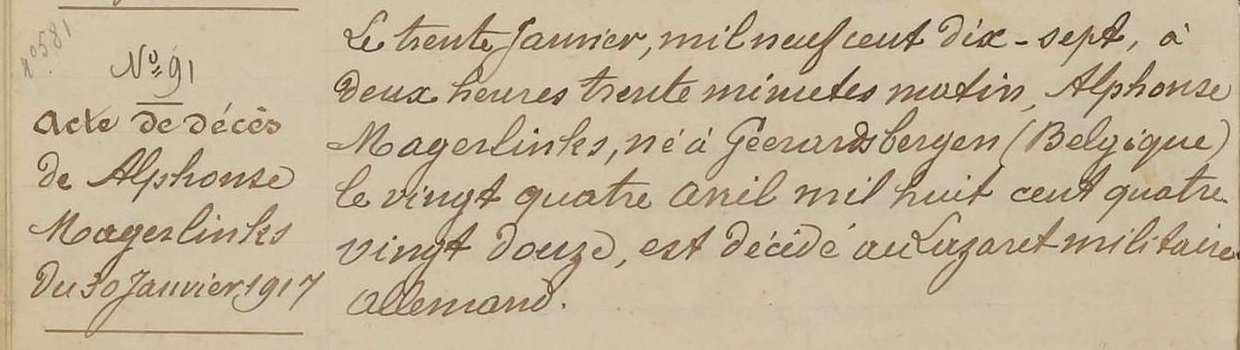 n°581
N° 91
Acte de décès
de Alphonse
Magerlinks
Du 30 Janvier 1917
Le trente Janvier, mil neuf cent dix-sept, à
deux heures trente minutes matin, Alphonse
Magerlinks, né à Geerardsbergen (Belgique)
le vingt quatre avril mil huit cent quatre
vingt douze, est décédé au Lazaret militaire
allemand.